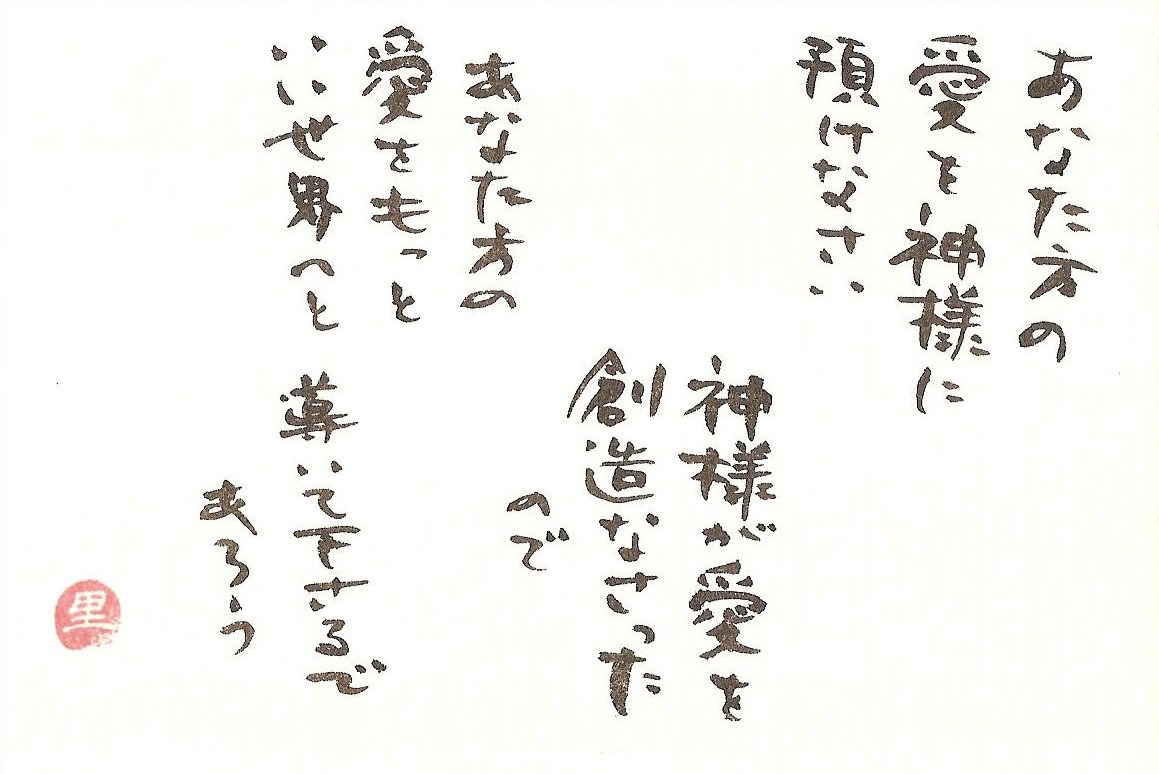 あなた方の
愛を神様に
預けなさい
神様が愛を
創造なさった
ので
あなた方の
愛をもっと
いい世界へと
導いて下さるで
あろう
里